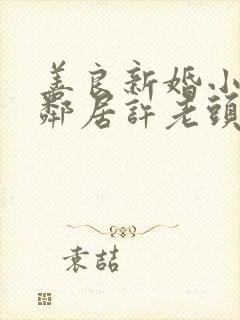 美良新婚小
鄰居許老頭
袁喆